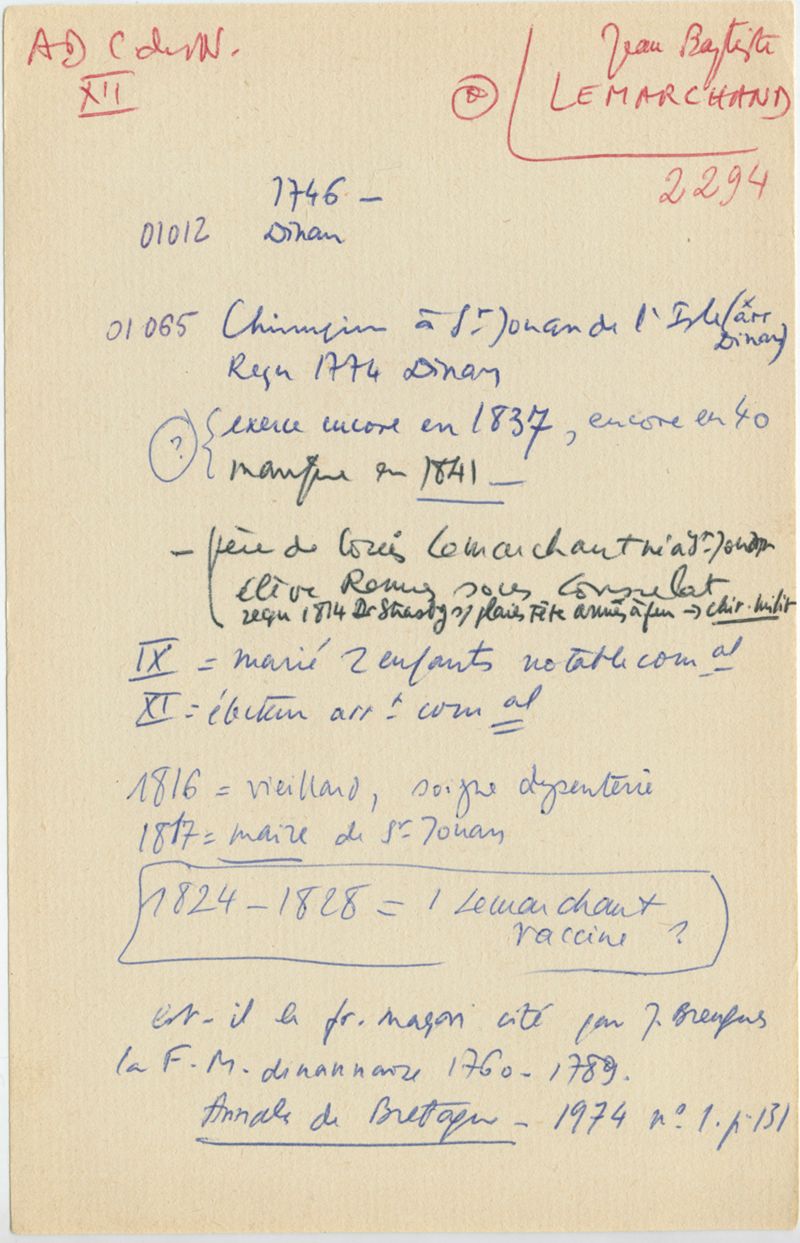 AD C du N.
XII
Jean Baptiste
LEMARCHAND
2294
1746 –
01012 Dinan
01065 Chirurgien à St Jouan de l'Isle (arr
Dinan)
Reçu 1774 Dinan
? exerce encore en 1837, encore en 40
manque en 1841 –
– père de Louis Lemarchant né à St Jouan
élève Rennes sous Consulat
reçu 1814 Dr Strasbg s/ plaies tête armes à feu → chir. milit
IX = marié 2 enfants notable com al
XI = électeur arrt com al
1816 = vieillard, soigne dysenterie
1817 = maire de St Jouan
1824 – 1828 = 1 Lemarchant
vaccine ?
est-il le fr. maçon cité par J. Brengues
la F.M. dinannaise 1760-1789.
Annales de Bretagne – 1974 n° 1. p. 131